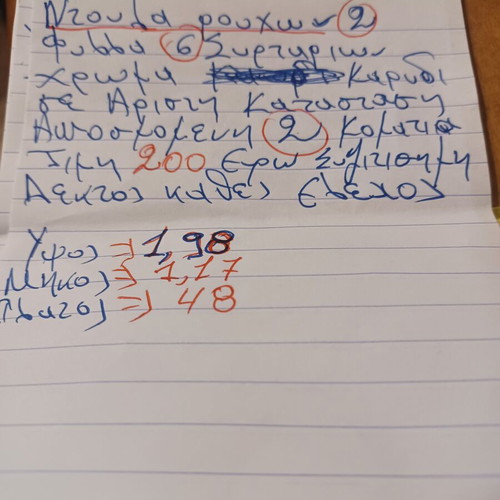 Ντουβα ρουχων 2
Φυββα 6 Συρταριων
Χρωμα Καρυδι
σε Αριστη Κατασταση
Αποσμομενη 2 Κοματια
Τιμη 200 Ευρω Συζιτισημη
Δεκτος καθε ελεχος
Υψος => 1,98
Μηκος => 1,17
Πλατος => 48